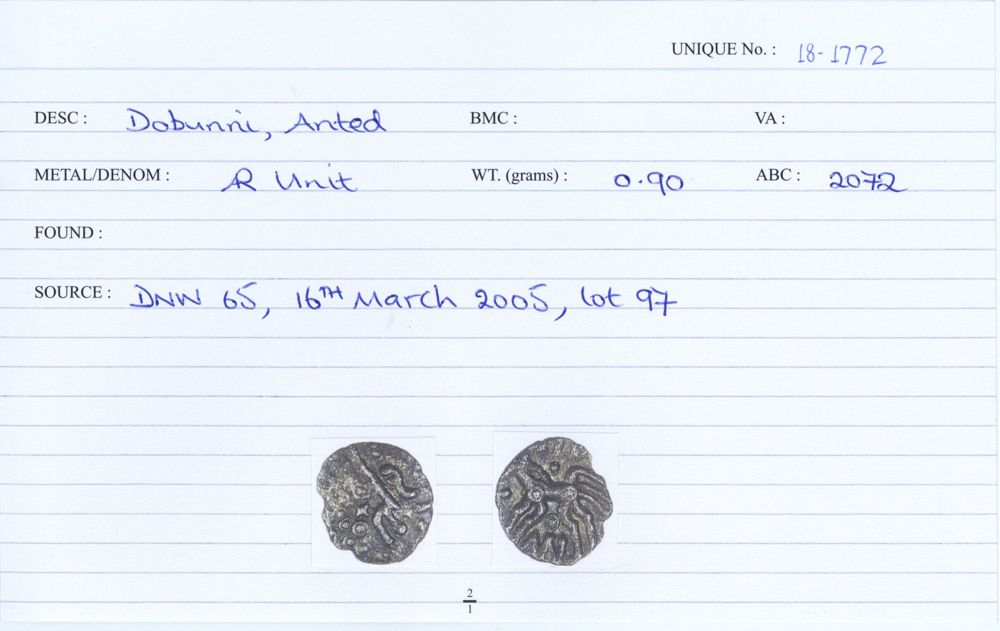 UNIQUE No. : 18-1772
DESC : Dobunni, Anted BMC : VA :
METAL/DENOM : AR Unit WT. (grams) : 0.90 ABC : 2072
FOUND :
SOURCE : DNW 65, 16TH March 2005, lot 97
2
1